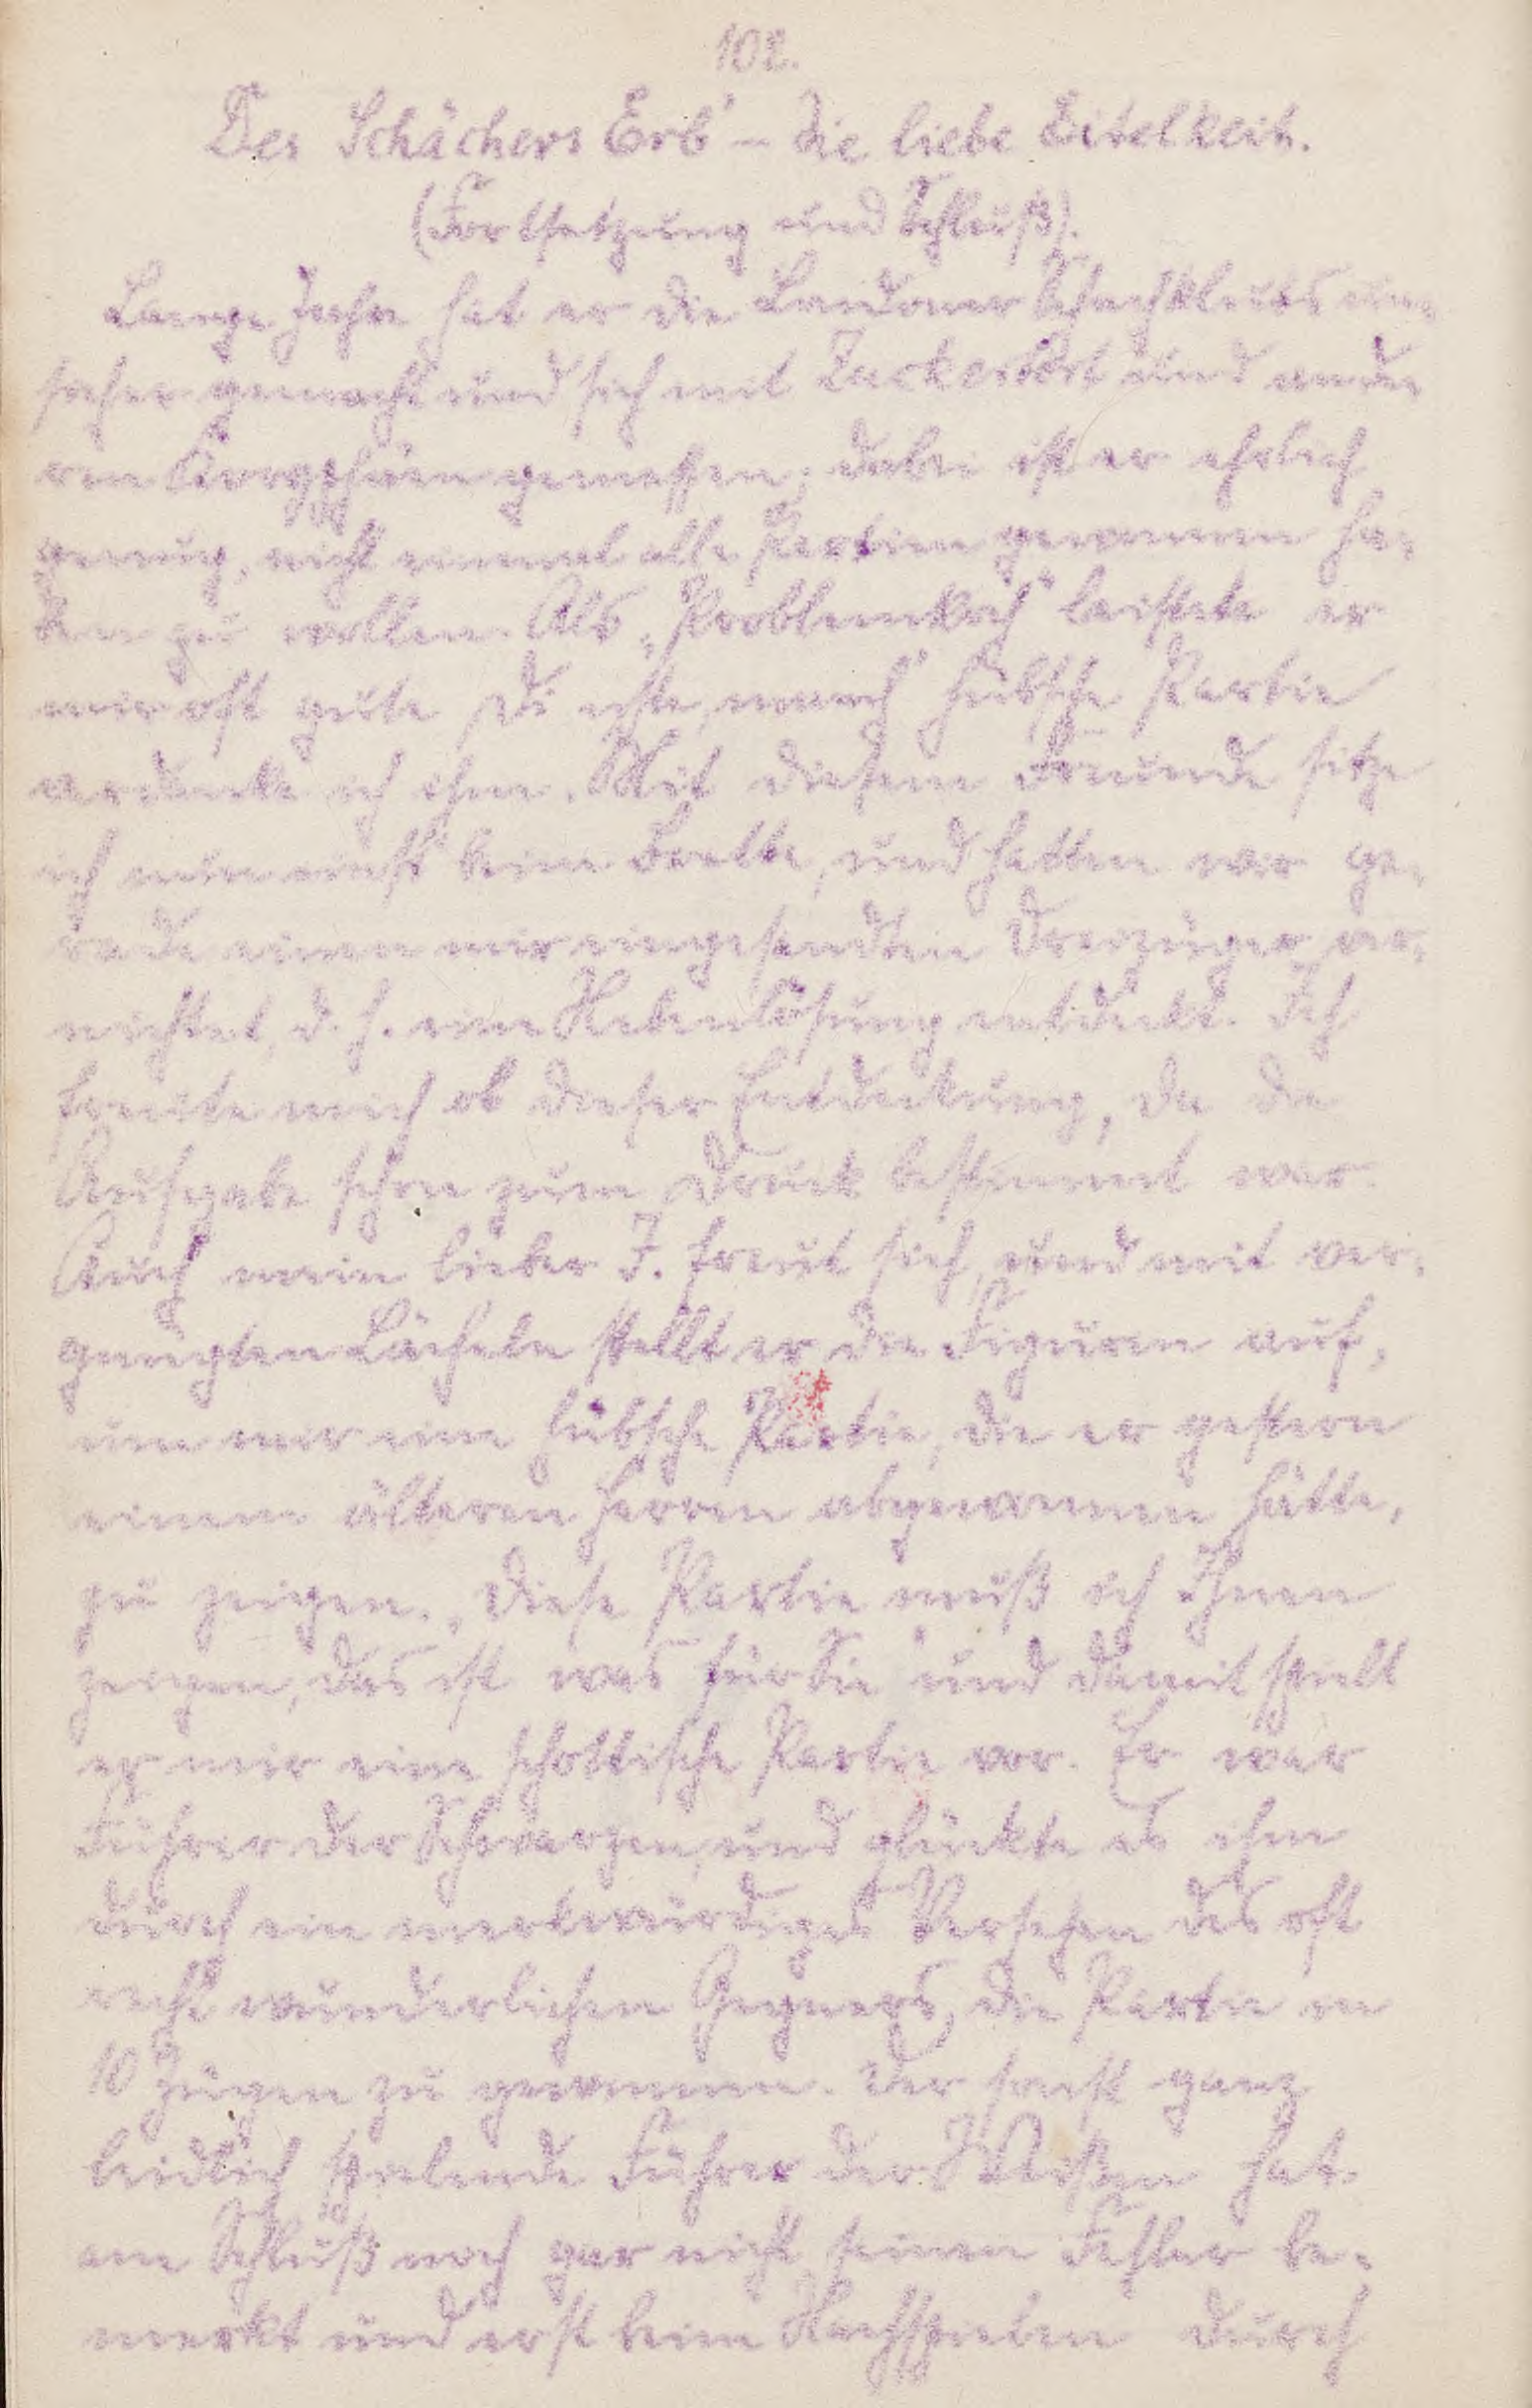 102.
Des Schächers Erb' – die liebe Eitelkeit.
(Fortsetzung und Schluß).
Lange Jahre hat er die Londoner Schachklubs un-
sicher gemacht und sich mit Zuckertort und ande
ren Koryphäen gemessen; dabei ist er ehrlich
genug, nicht einmal alle Partien gewonnen ha-
ben zu wollen. Als „Problemkoch" leistete er
mir oft gute Dienste, manch' hübsche Partie
verdanke ich ihm. Mit diesem Freunde sitze
ich nun einst beim Brette, und hatten wir ge-
rade einen mir eingesendten Dreizüger ver-
nichtet, d. h. eine Nebenlösung entdeckt. Ich
freute mich ob dieser Entdeckung, da die
Aufgabe schon zum Druck bestimmt war.
Auch mein lieber F. freut sich, und mit ver-
gnügten Lächeln stellt er die Figuren auf,
um mir eine hübsche Partie, die er gestern
einem älteren Herren abgewonnen hätte,
zu zeigen. „Diese Partie muß ich Ihnen
zeigen, das ist was für Sie" und damit spielt
er mir eine schottische Partie vor. Er war
Führer der Schwarzen, und glückte es ihm
durch ein merkwürdiges Versehen des oft
recht wunderlichen Gegners, die Partie in
10 Zügen zu gewinnen. Der sonst ganz
leidlich spielende Führer der Weißen hat
am Schluß noch gar nicht seinen Fehler be-
merkt und erst beim Nachspielen durch